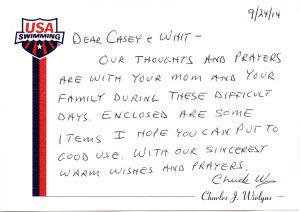 9/24/14
USA
SWIMMING
DEAR CASEY & WHIT -
OUR THOUGHTS AND PRAYERS
ARE WITH YOUR MOM AND YOUR
FAMILY DURING THESE DIFFICULT
DAYS. ENCLOSED ARE SOME
ITEMS I HOPE YOU CAN PUT TO
GOOD USE. WITH OUR SINCEREST
WARM WISHES AND PRAYERS,
Chuck W
Charles J. Wielgus